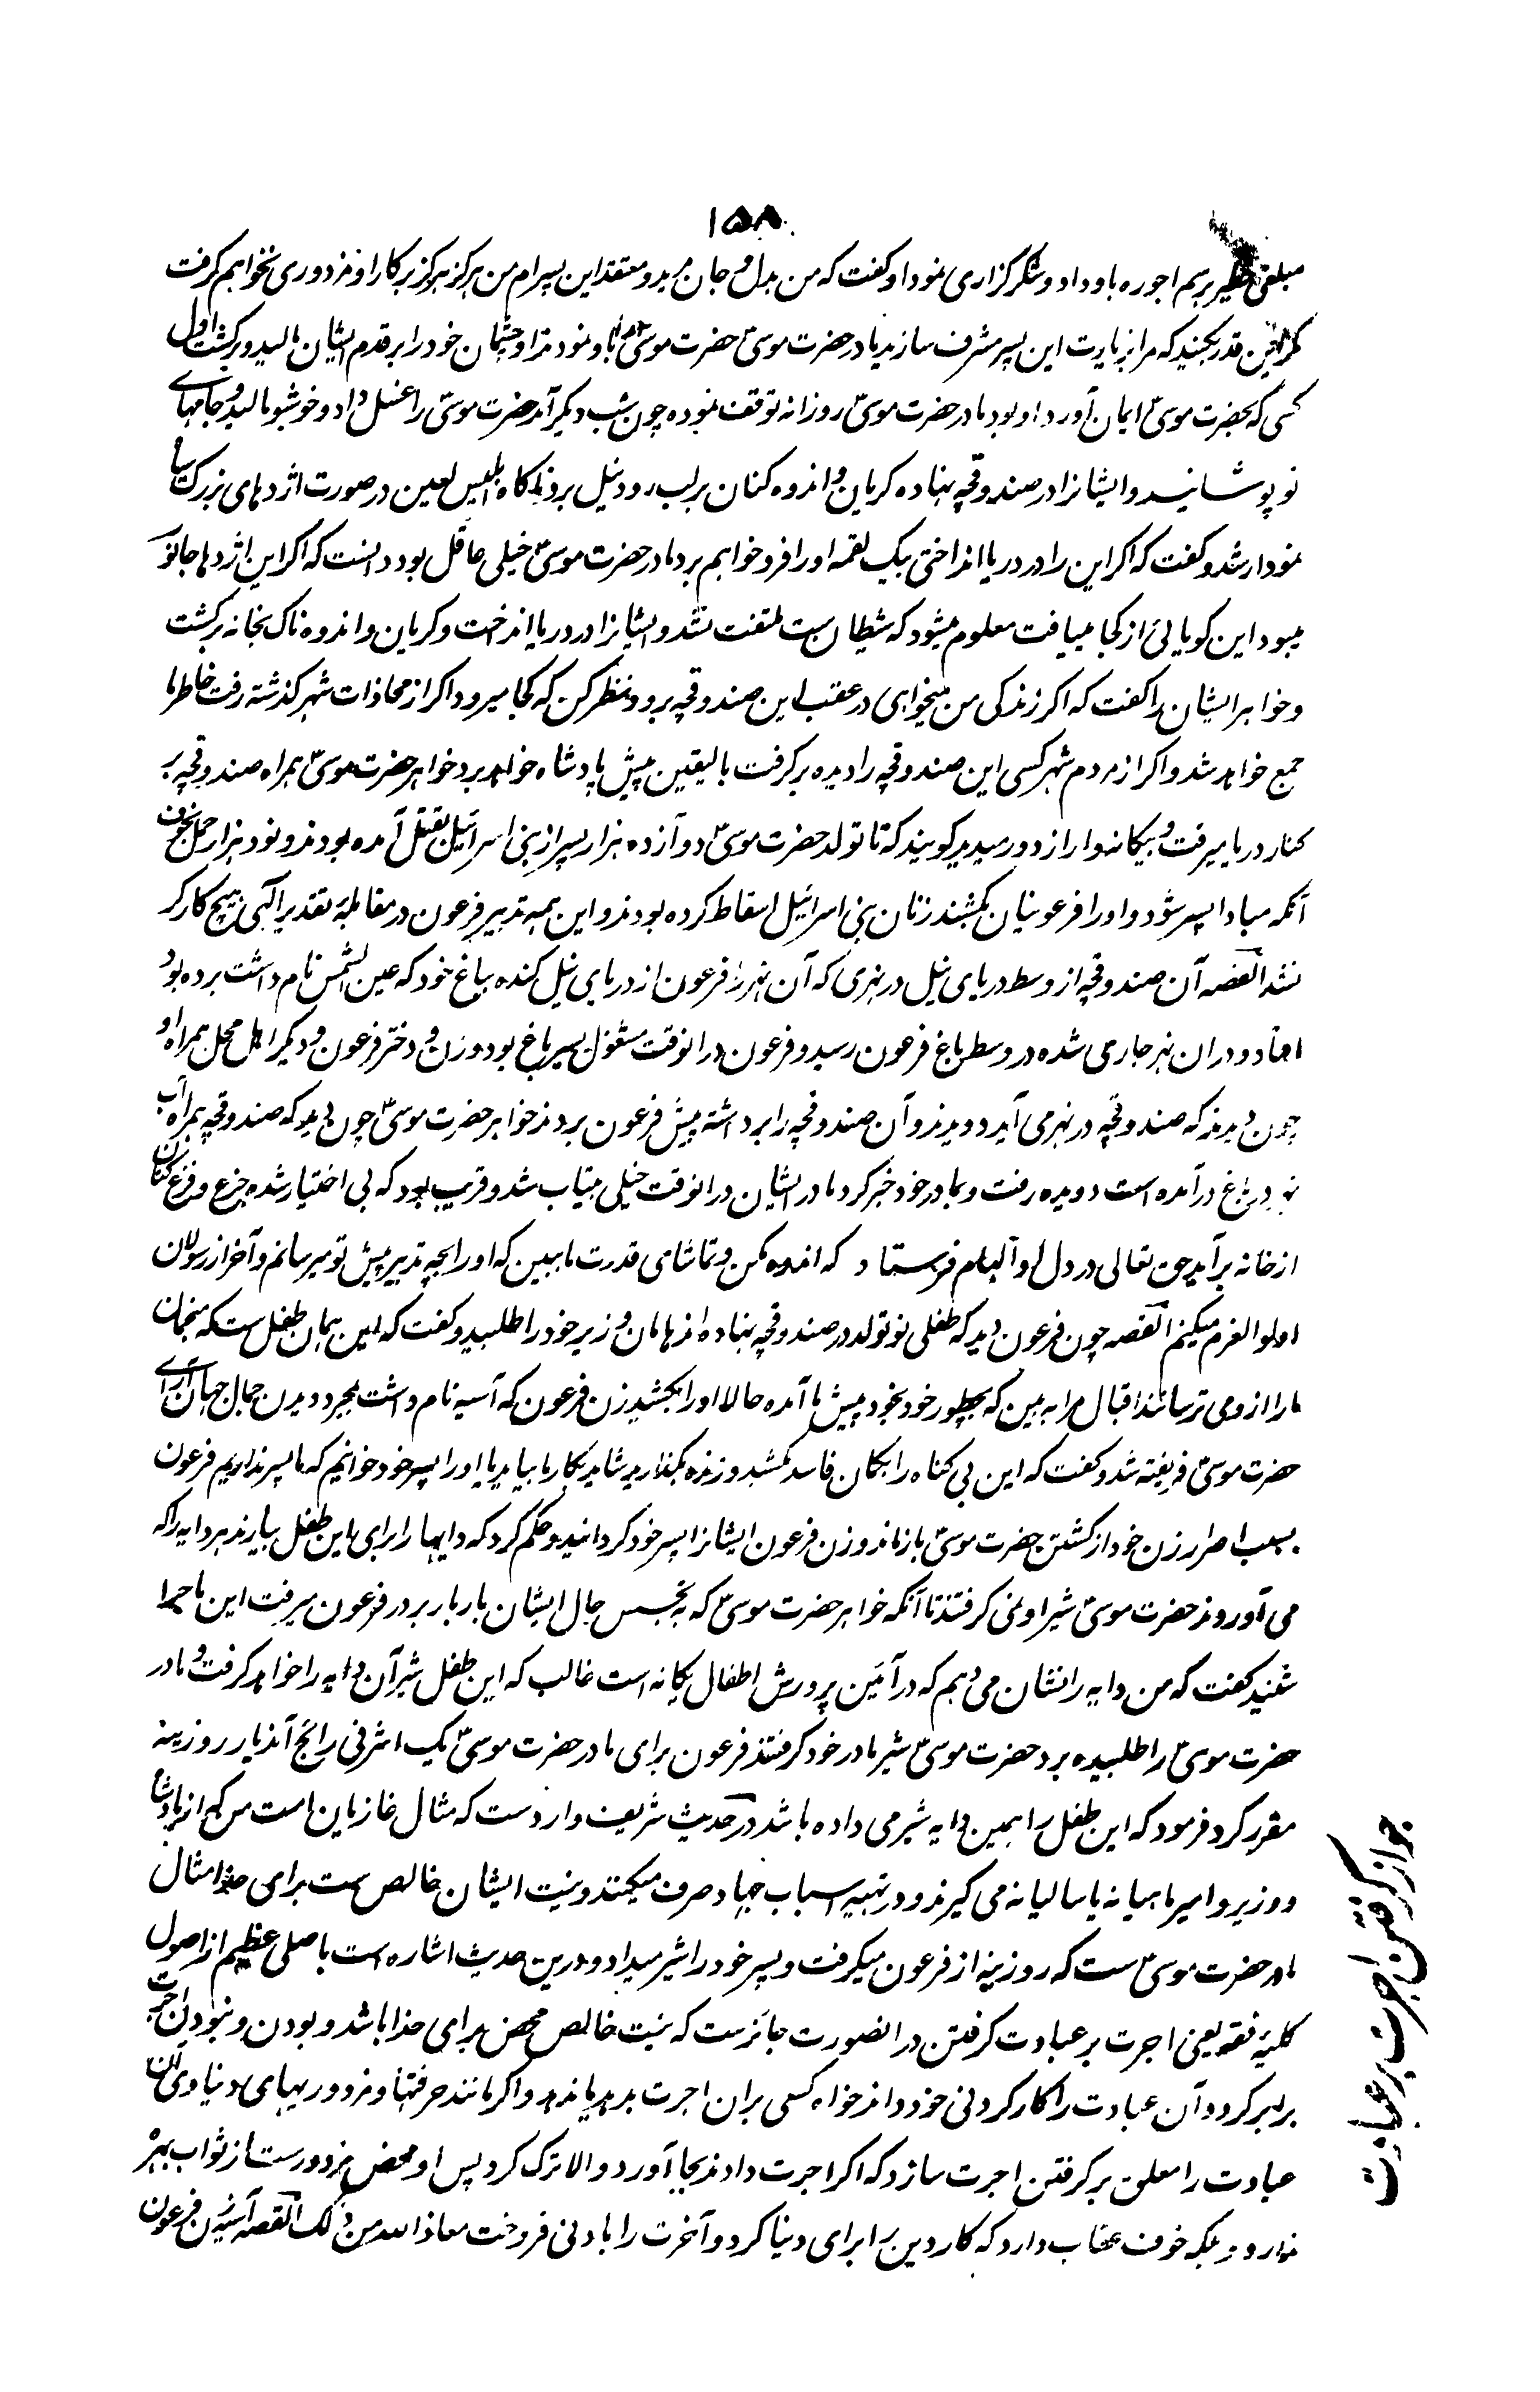 ۱۵۸
مبلغی خطیر برسم اجوره باو داد و شکرگزاری نمود او گفت که من بدل و جان مرید و معتقد این پسر ام من هرگز هرگز بر کار او مزدوری نخواهم گرفت
قدر بکنید که مرا بزیارت این پسر مشرف سازید مادر حضرت موسیؑ حضرت موسیؑ را باو نمودند او چشمان خود را بر قدم ایشان مالید و برگشت اول
کسی که بحضرت موسیؑ ایمان آورد او بود مادر حضرت موسیؑ روزانه توقف نموده چون شب دیگر آمد حضرت موسیؑ را غسل داد و خوشبو مالید و جامهای
نو پوشانید و ایشانرا در صندوقچه نهاده گریان و اندوه کنان بر لب رود نیل برد ناگاه ابلیس لعین در صورت اژدهای بزرگ سیاه
نمودار شد و گفت که اگر این را در دریا انداختی بیک لقمه او را فرو خواهم برد مادر حضرت موسیؑ خیلی عاقل بود دانست که اگر این اژدها جانور
میبود این گویائی از کجا مییافت معلوم میشود که شیطان ست ملتفت نشد و ایشانرا در دریا انداخت و گریان و اندوه ناک بخانه برگشت
و خواهر ایشان را گفت که اگر زندگی من میخواهی در عقب این صندوقچه برو و نظر کن که کجا میرود اگر از محاذات شهر گذشته رفت خاطر ما
جمع خواهد شد و اگر از مردم شهر کسی این صندوقچه را دیده برگرفت بالیقین پیش پادشاه خواهد برد خواهر حضرت موسیؑ همراه صندوقچه بر
کنار دریا میرفت و بیگانه وار از دور میدید گویند که تا تولد حضرت موسیؑ دوازده هزار پسر از بنی اسرائیل بقتل آمده بودند و نود هزار حمل بخوف
آنکه مبادا پسر شود و او را فرعونیان بکشند زنان بنی اسرائیل اسقاط کرده بودند و این همه تدبیر فرعون در مقابله تقدیر الٓهی هیچ کارگر
نشد القصه آن صندوقچه از وسط دریای نیل در نهری که آن نهر را فرعون از دریای نیل کنده بباغ خود که عین الشمس نام داشت برده بود
افتاد و دران نهر جاری شده در وسط باغ فرعون رسید و فرعون درانوقت مشغول بسیر باغ بود و زن و دختر فرعون و دیگر اهل محل همراه او
چون دیدند که صندوقچه در نهر می آید دویدند و آن صندوقچه را برداشته پیش فرعون بردند خواهر حضرت موسیؑ چون دید که صندوقچه همراه آب
نهر در باغ درآمده است دویده رفت و بمادر خود خبر کرد مادر ایشان درانوقت خیلی بیتاب شد و قریب بود که بی اختیار شده جزع و فزع کنان
از خانه برآید حق تعالی در دل او الهام فرستاد که اندوه مکن و تماشای قدرت ما ببین که او را بچه تدبیر پیش تو میرسانم و آخر از رسولان
اولوالعزم میکنم القصه چون فرعون دید که طفلی نو تولد در صندوقچه نهاده اند هامان وزیر خود را طلبید و گفت که این همان طفل ست که منجمان
ما را ازو می ترسانند اقبال مرا به بین که بچطور خود بخود پیش ما آمده حالا او را بکشید زن فرعون که آسیه نام داشت بمجرد دیدن جمال جهان آرای
حضرت موسیؑ فریفته شد و گفت که این بی گناه را بگمان فاسد مکشید و زنده بگذارید شاید بکار ما بیاید یا او را پسر خود خوانیم که ما پسر نداریم فرعون
بسبب اصرار زن خود از کشتن حضرت موسیؑ باز ماند و زن فرعون ایشانرا پسر خود گردانید و حکم کرد که دایها را برای این طفل بیارند هر دایه را که
می آوردند حضرت موسیؑ شیر او نمی گرفتند تا آنکه خواهر حضرت موسیؑ که به تجسس حال ایشان بار بار بر در فرعون میرفت این ماجرا
شنید گفت که من دایه را نشان می دهم که در آئین پرورش اطفال یگانه است غالب که این طفل شیر آن دایه را خواهد گرفت و مادر
حضرت موسیؑ را طلبیده برد حضرت موسیؑ شیر مادر خود گرفتند فرعون برای مادر حضرت موسیؑ یک اشرفی رائج آندیار روزینه
مقرر کرد و فرمود که این طفل را همین دایه شیر می داده باشد در حدیث شریف وارد ست که مثال غازیان امت من که از پادشاه
و وزیر و امیر ماهیانه یا سالیانه می گیرند و در تهیه اسباب جهاد صرف میکنند و نیت ایشان خالص ست برای خدا مثال
مادر حضرت موسیؑ ست که روزینه از فرعون میگرفت و پسر خود را شیر میداد و درین حدیث اشاره است باصلی عظیم از اصول
کلیه فقه یعنی اجرت بر عبادت گرفتن درانصورت جائز ست که نیت خالص محض برای خدا باشد و بودن و نبودن اجرت
برابر گردد و آن عبادت را کار کردنی خود داند خواه کسی بران اجرت بدهد یا ندهد و اگر مانند حرفتها و مزدوریهای دنیاوی آن
عبادت را معلق بر گرفتن اجرت سازد که اگر اجرت دادند بجا آورد و الا ترک کرد پس او محض مزدور ست از ثواب بهره
ندارد بلکه خوف عقاب دارد که کار دین را برای دنیا کرد و آخرت را بادنی فروخت معاذ الله من ذلک القصه آسیه زن فرعون
جواز گرفتن اجرت بر عبادت